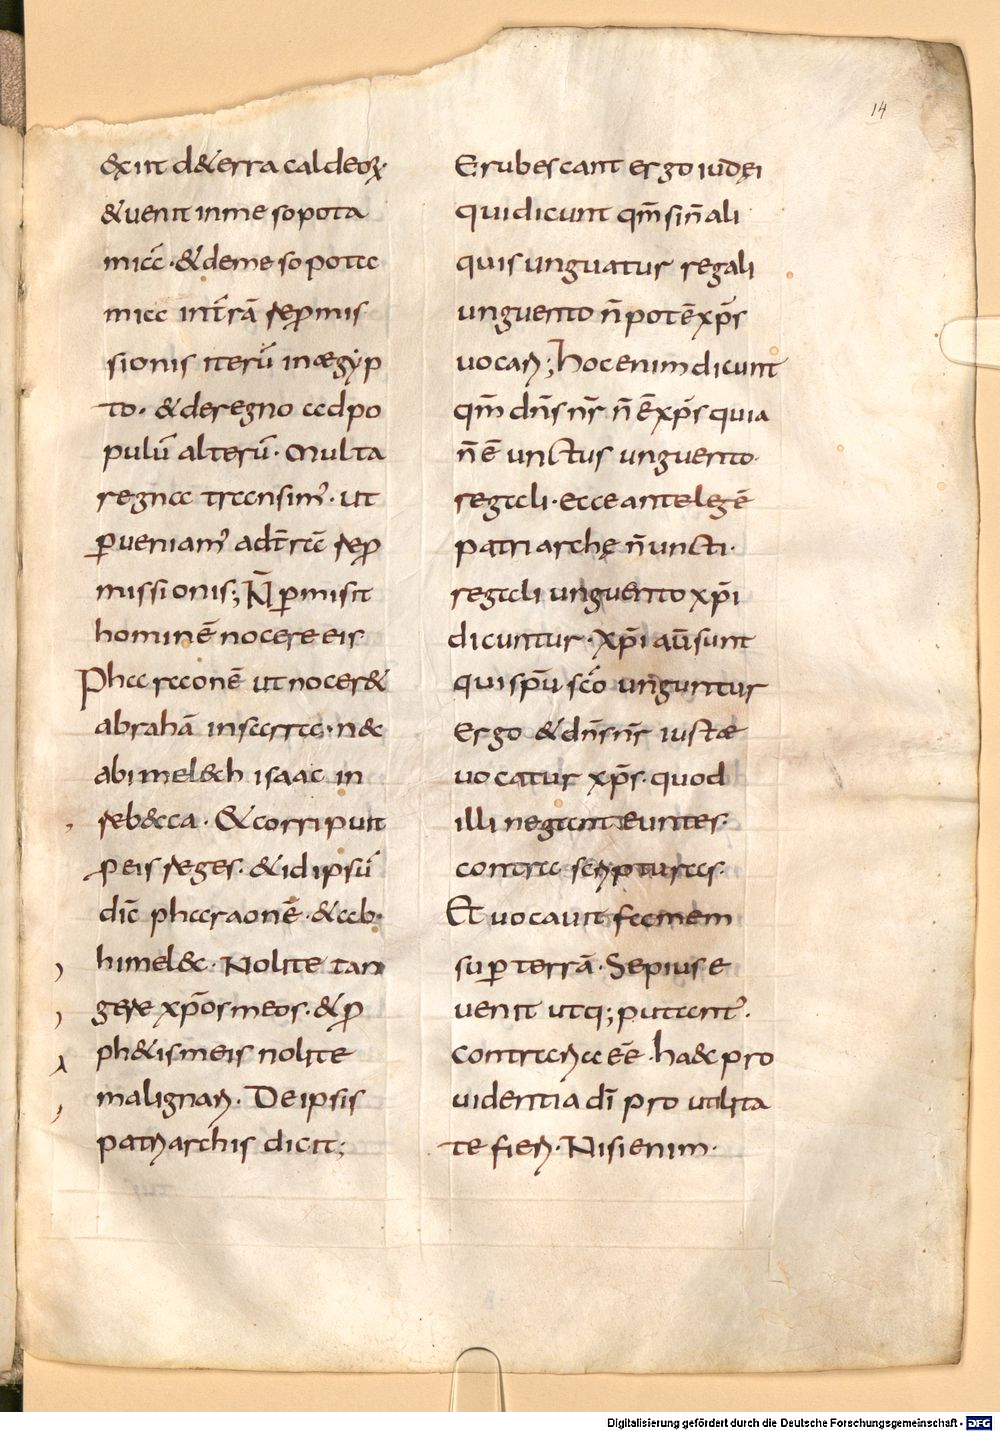 14
&xiit d&erra caldeoꝝ·
&uenit inmesopota
miā·&demesopota
mia int̄rā repmis
sionis iterū inægyp
to· &deregno adpo
pulū alterū· Multa
regna transim̓· ut
ꝑueniam̓ adt̄rā rep
missionis; N̄ ꝑmisit
hominē nocere eis
Pharaonē ut nocer&
abrahā insarra· nec
abimel&h isaac in
rebecca· &corripuit
ꝓeis reges· &idipsū
diē pharaonē·&ab
himelec· Nolite tan
gere xp̄os meos·&ꝓ
ph&is meis nolite
malignari· Deipsis
patriarchis dicit;
Erubescant ergo iudęi
qui dicunt qm̄ sin̄ ali
quis unguatur regali
unguento n̄ potē xp̄s
uocari; hoc enim dicunt
qm̄ dn̄s nr̄ n̄ ē xp̄s quia
n̄ ē unctus unguento
regali· ecce ante legē
patriarchę n̄ uncti·
regali unguento xp̄i
dicuntur· xp̄i aū sunt
qui sp̄u sc̄o unguntur
Ergo &dn̄s nr̄ iustæ
uocatur xp̄s· quod
illi negant euntes·
contra scripturas·
Et uocauit famem
suꝑ terrā· Sepius e
uenit utq; putant̓·
contraria eē· haec pro
uidentia dī pro utilita
te fieri· Nisi enim·
Digitalisierung gefördert durch die Deutsche Forschungsgemeinschaft - DFG